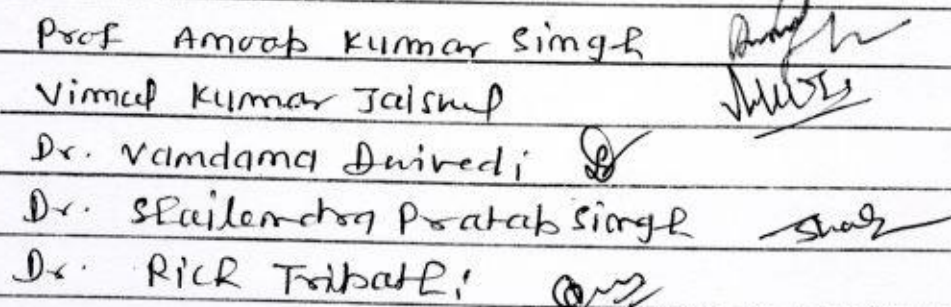 Prof Anoop Kumar Singh
Vimal Kumar Jaiswal
Dr. Vandana Dwivedi
Dr. Shailendra Pratap Singh
Dr. Richa Tripathi